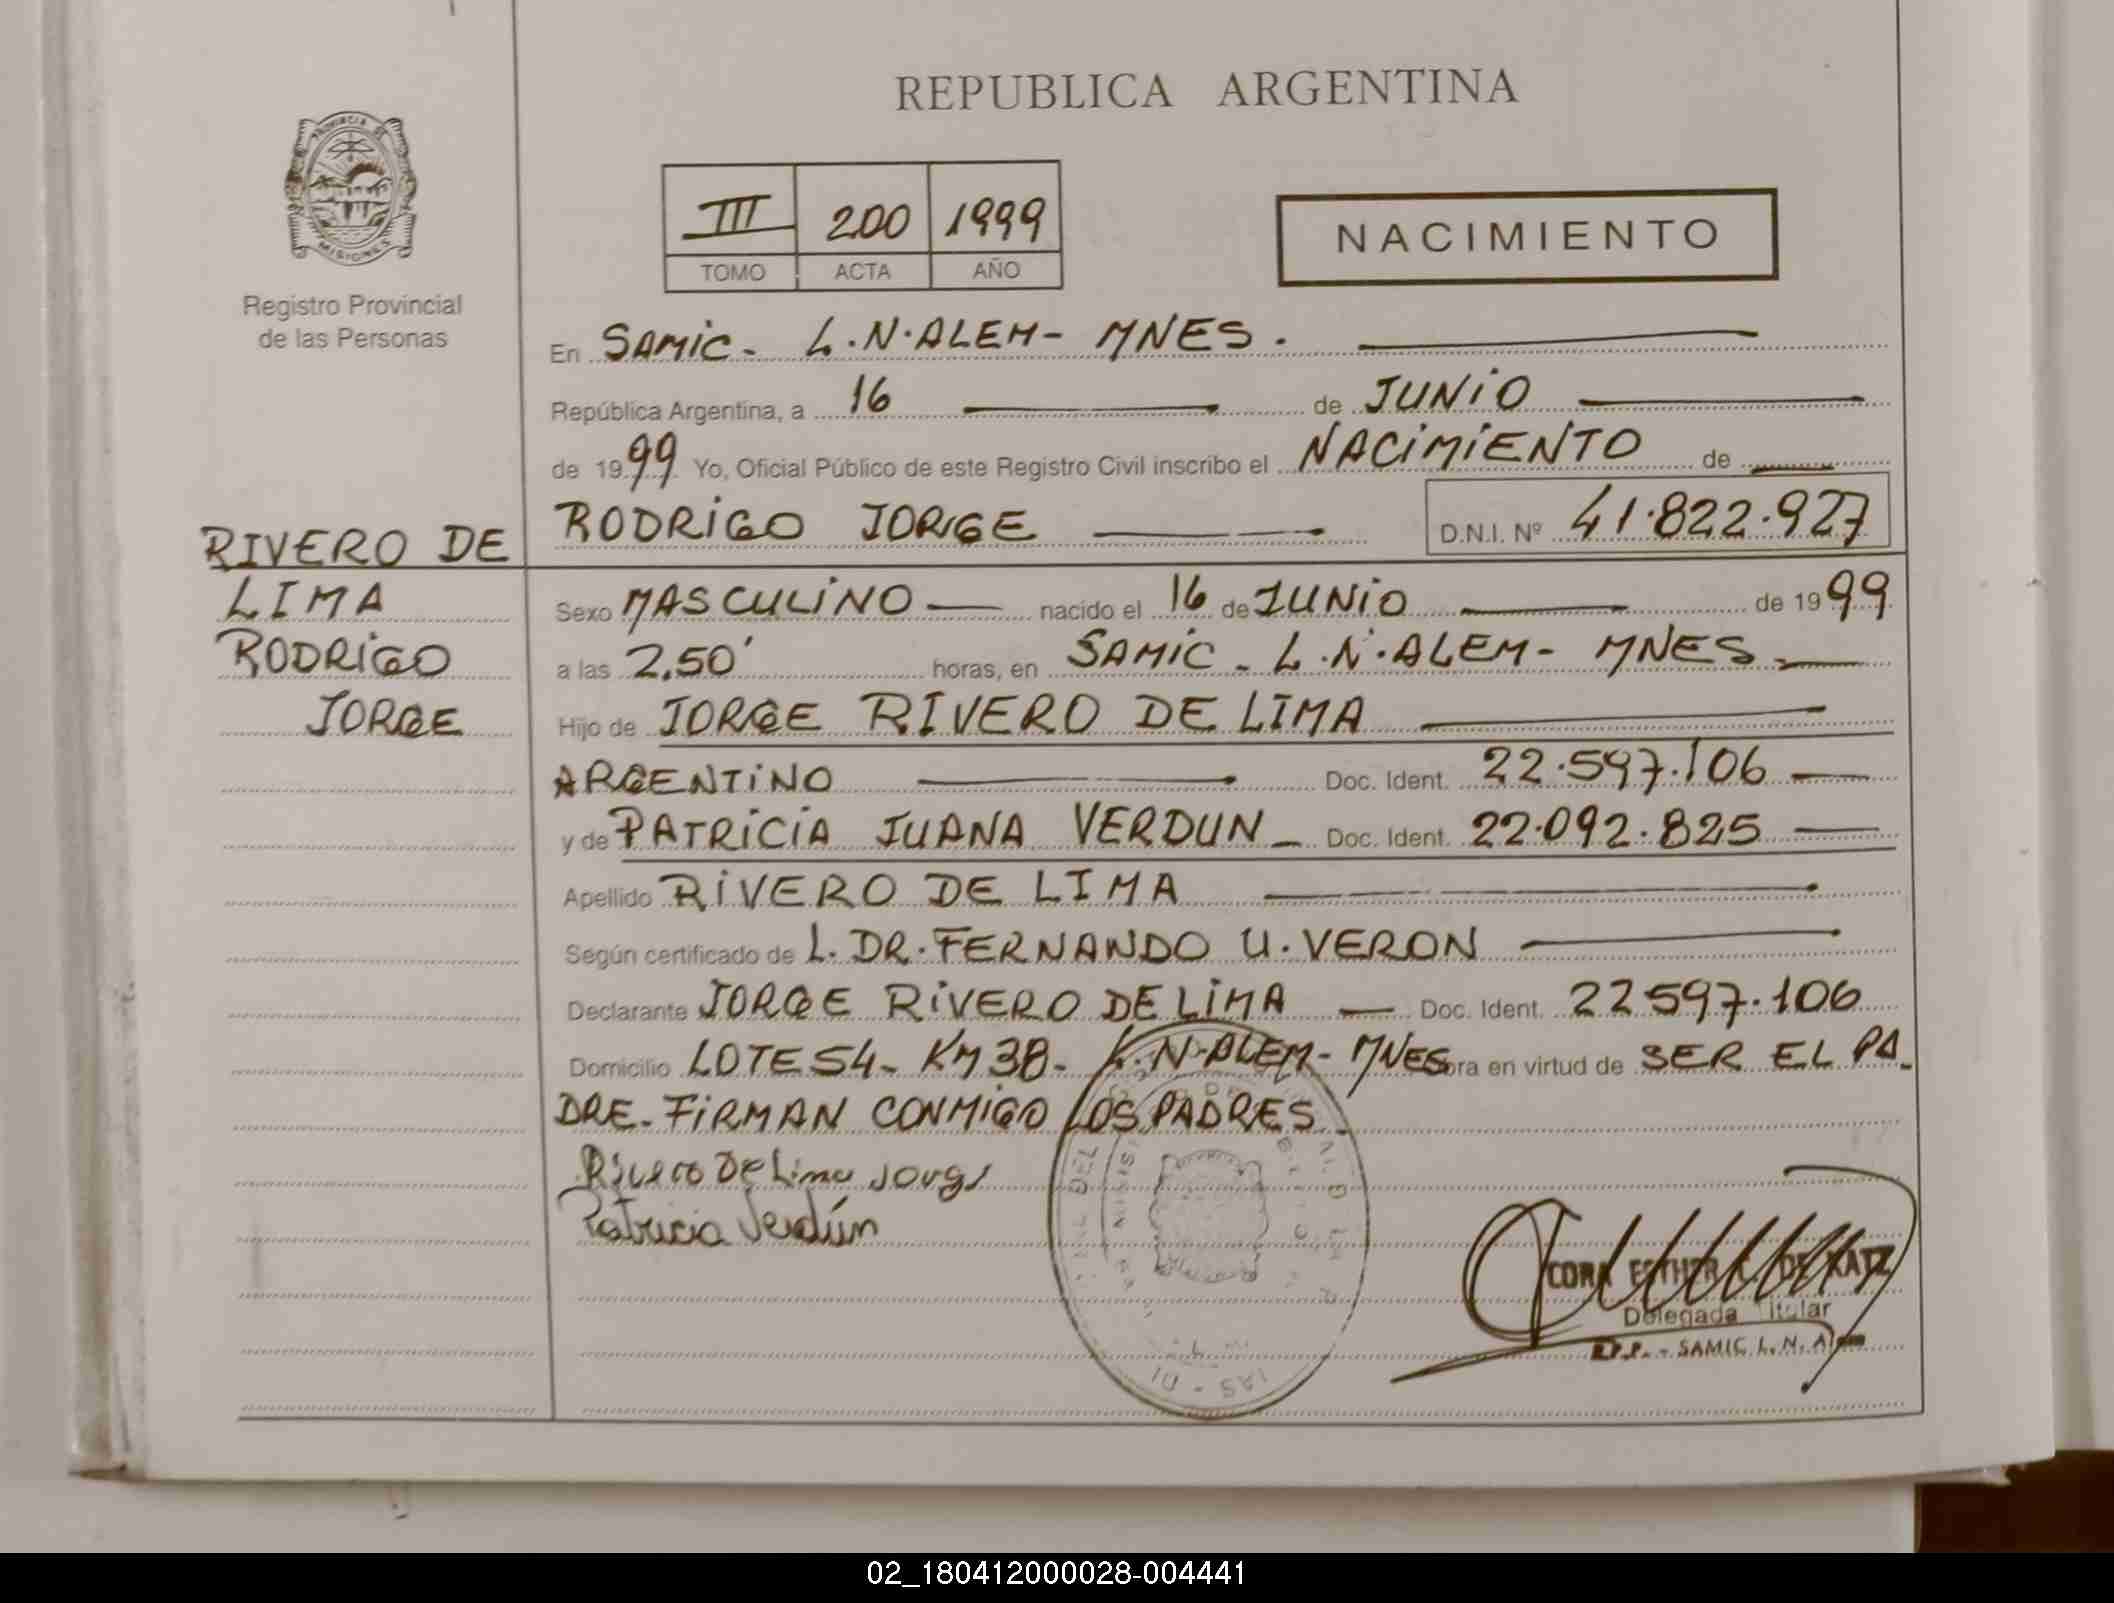 REPUBLICA ARGENTINA
PROVINCIA DE
MISIONES
Registro Provincial
de las Personas
III 200 1999
TOMO ACTA AÑO
NACIMIENTO
En SAMIC. L.N.ALEM- MNES.
República Argentina, a 16 de JUNIO
de 1999 Yo, Oficial Público de este Registro Civil inscribo el NACIMIENTO de
RODRIGO JORGE D.N.I. Nº 41.822.927
RIVERO DE
LIMA
RODRIGO
JORGE
Sexo MASCULINO nacido el 16 de JUNIO de 1999
a las 2,50' horas, en SAMIC - L.N.ALEM- MNES.
Hijo de JORGE RIVERO DE LIMA
ARGENTINO Doc. Ident. 22.597.106
y de PATRICIA JUANA VERDUN Doc. Ident. 22.092.825
Apellido RIVERO DE LIMA
Según certificado de L. DR. FERNANDO U. VERON
Declarante JORGE RIVERO DE LIMA Doc. Ident. 22597.106
Domicilio LOTE 54- KM 38- L.N-ALEM- MNES ora en virtud de SER EL PA-
DRE- FIRMAN CONMIGO LOS PADRES.
Rivero De Lima Jorge
Patricia Verdún
CORA ESTHER DE KATZ
Delegada Titular
R.P.P. - SAMIC L.N. Alem
02_180412000028-004441